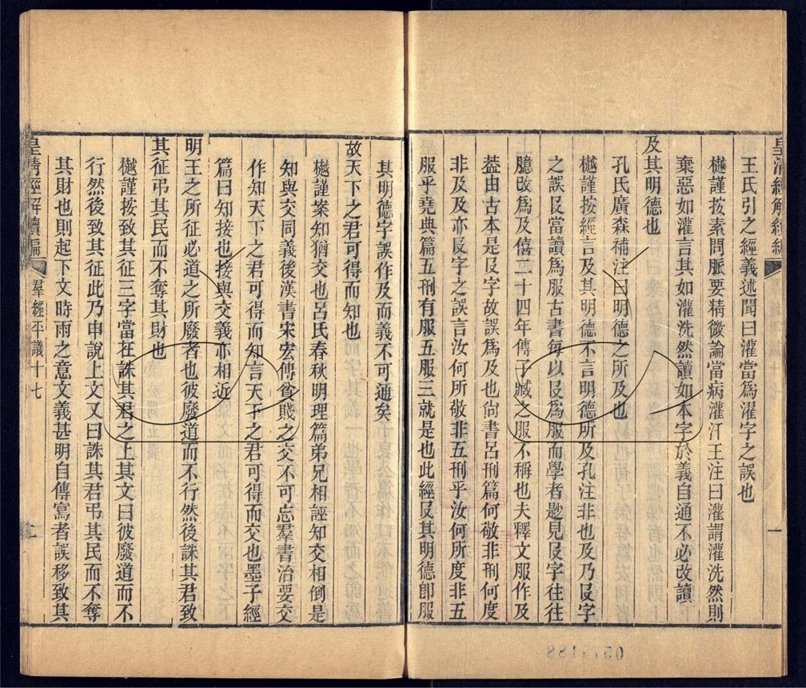 王氏引之經義述聞曰灌當爲濯字之誤也
樾謹按素問脈要精微論當病灌汗王注曰灌謂灌洗然則
棄惡如灌言其如灌洗然讀如本字於義自通不必改讀
及其明德也
孔氏廣森補注曰明德之所及也
樾謹按經言及其明德不言明德所及孔注非也及乃𠬝字
之誤𠬝當讀爲服古書每以𠬝爲服而學者尟見𠬝字往往
臆改爲及僖二十四年傳子臧之服不稱也夫釋文服作及
葢由古本是𠬝字故誤爲及也尙書呂刑篇何敬非刑何度
非及及亦𠬝字之誤言汝何所敬非五刑乎汝何所度非五
服乎堯典篇五刑有服五服三就是也此經𠬝其明德卽服
皇淸經解續編
羣經平議十七
其明德字誤作及而義不可通矣
故天下之君可得而知也
樾謹案知猶交也呂氏春秋明理篇弟兄相誣知交相倒是
知與交同義後漢書宋宏傳貧賤之交不可忘羣書治要交
作知天下之君可得而知言天下之君可得而交也墨子經
篇曰知接也接與交義亦相近
明王之所征必道之所廢者也彼廢道而不行然後誅其君致
其征弔其民而不奪其財也
樾謹按致其征三字當在誅其君之上其文曰彼廢道而不
行然後致其征此乃申說上文又曰誅其君弔其民而不奪
其財也則起下文時雨之意文義甚明自傳寫者誤移致其